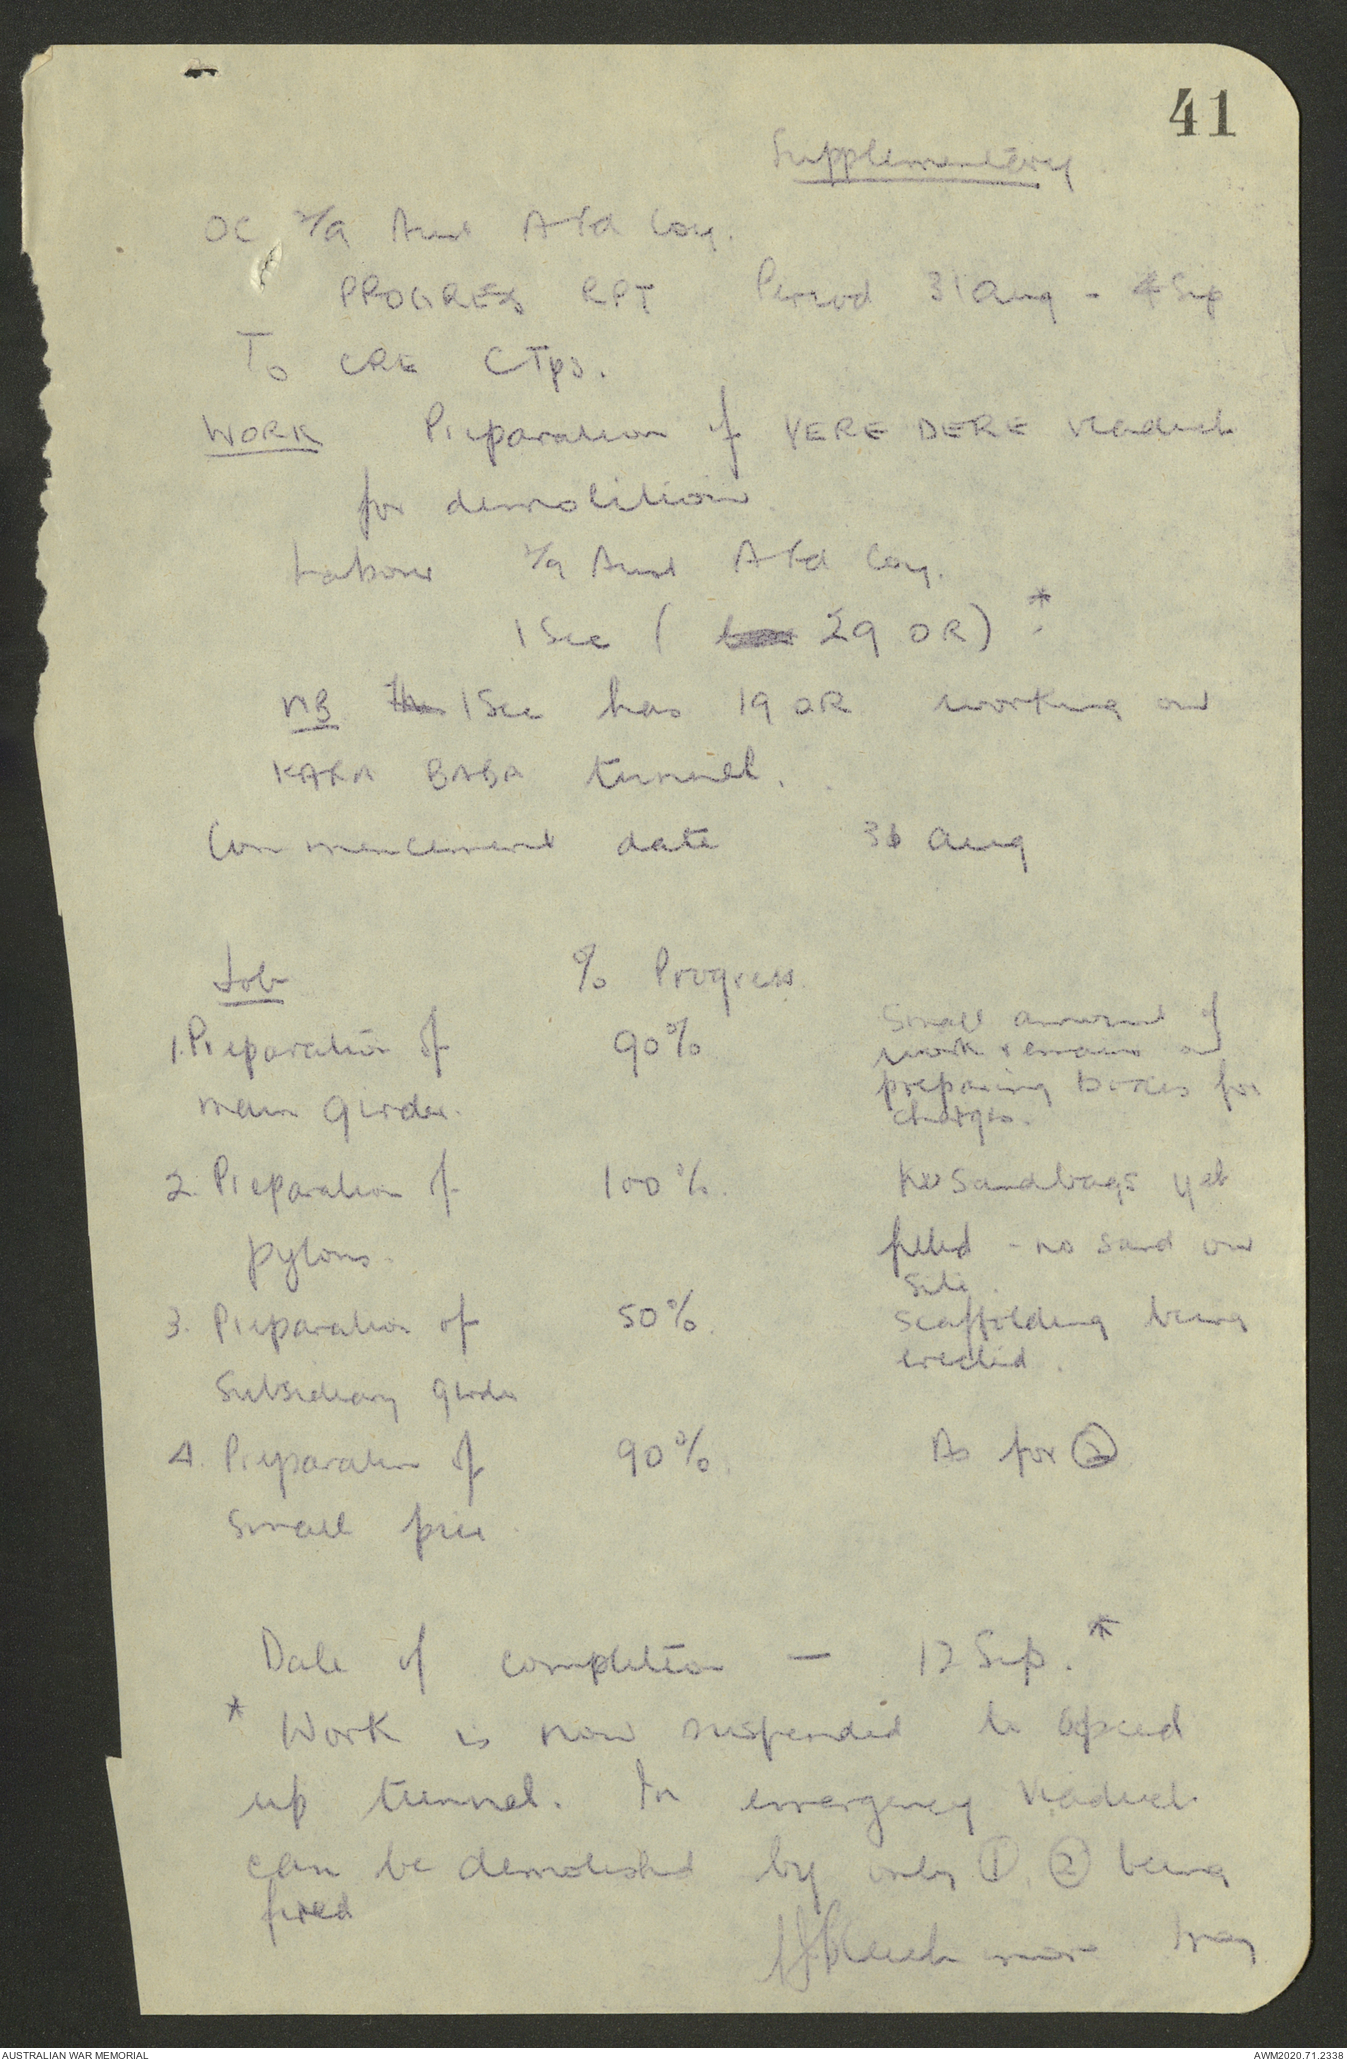 41
Supplementary
OC 2/9 Aust A Fd Coy.
PROGRESS RPT Period 31 Aug - 4 Sep
To CRE CTps.
WORK Preparation of YERE DERE viaduct
for demolition
Labour 2/9 Aust A Fd Coy.
1 Sec ( 29 OR) *
NB the 1 Sec has 19 OR working on
KARA BABA tunnel.
Commencement date Aug
Job % Progress
1. Preparation of main girder. 90% Small amount of work remains on preparing boxes for charges.
2. Preparation of pylons. 100%. No sandbags yet filled - no sand on site.
3. Preparation of subsidiary girder 50%. Scaffolding being erected.
4. Preparation of small pier. 90%. As for 2
Date of completion — 12 Sep. *
* Work is now suspended to speed
up tunnel. In emergency viaduct
can be demolished by only 1, 2 being
fired
AUSTRALIAN WAR MEMORIAL
AWM2020.71.2338